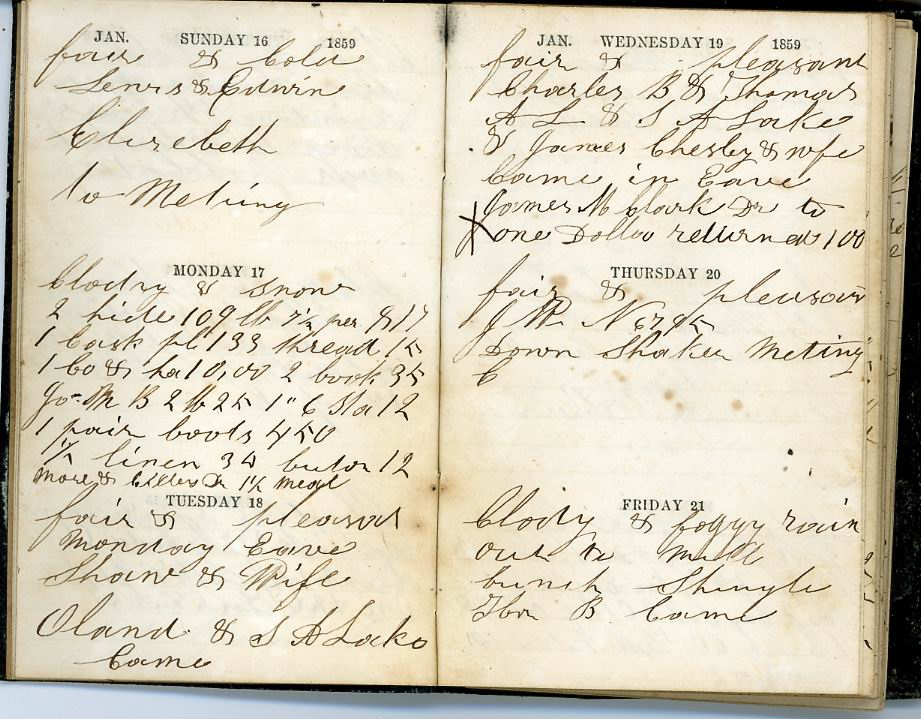 JAN. SUNDAY 16 1859
fair & Cold
Lewis & Edwin
Elizebeth
to Meting
MONDAY 17
Clody & snow
2 hide 109 lb 7½ per
1 Cask 133 thread 15
10,00 2 book 35
B 2 lb 25 12
1 pair boots 450
linen 34 buton 12
more & 1½ meal
TUESDAY 18
fair & pleasant
Monday Eave
Shaw & Wife
Oland & S A Lake
Came
JAN. WEDNESDAY 19 1859
fair & pleasant
Charles B & Thomas
A L & S A Lake
& James Chesley & wfe
Came in Eave
James M Clark Dr to
X one Dollar returned 100
THURSDAY 20
fair & pleasan
Down Shaker Meting
C
FRIDAY 21
Clody & foggy rain
out to Mill
bunch Shingle
B Came